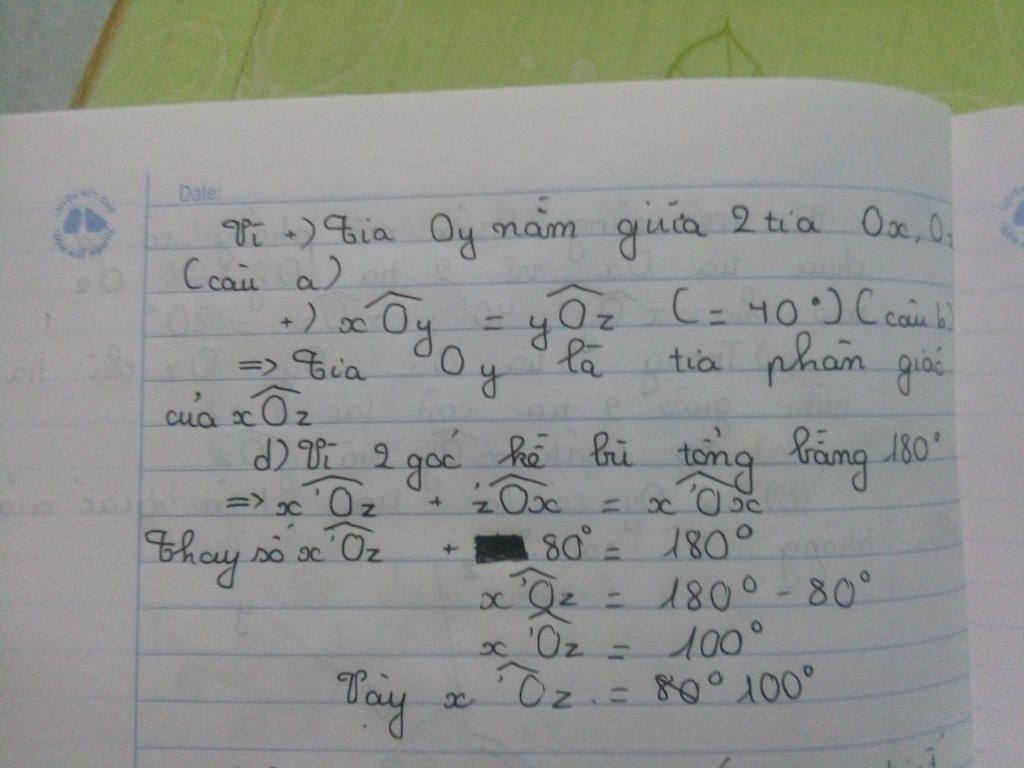 Date:
Vì +) Tia Oy nằm giữa 2 tia Ox, Oz
(câu a)
+) xÔy = yÔz (= 40°) (câu b)
=> Tia Oy là tia phân giác
của xÔz
d) Vì 2 góc kề bù tổng bằng 180°
=> x'Ôz + zÔx = x'Ôx
Thay số x'Ôz + 80° = 180°
x'Ôz = 180° - 80°
x'Ôz = 100°
Vậy x'Ôz = 80° 100°